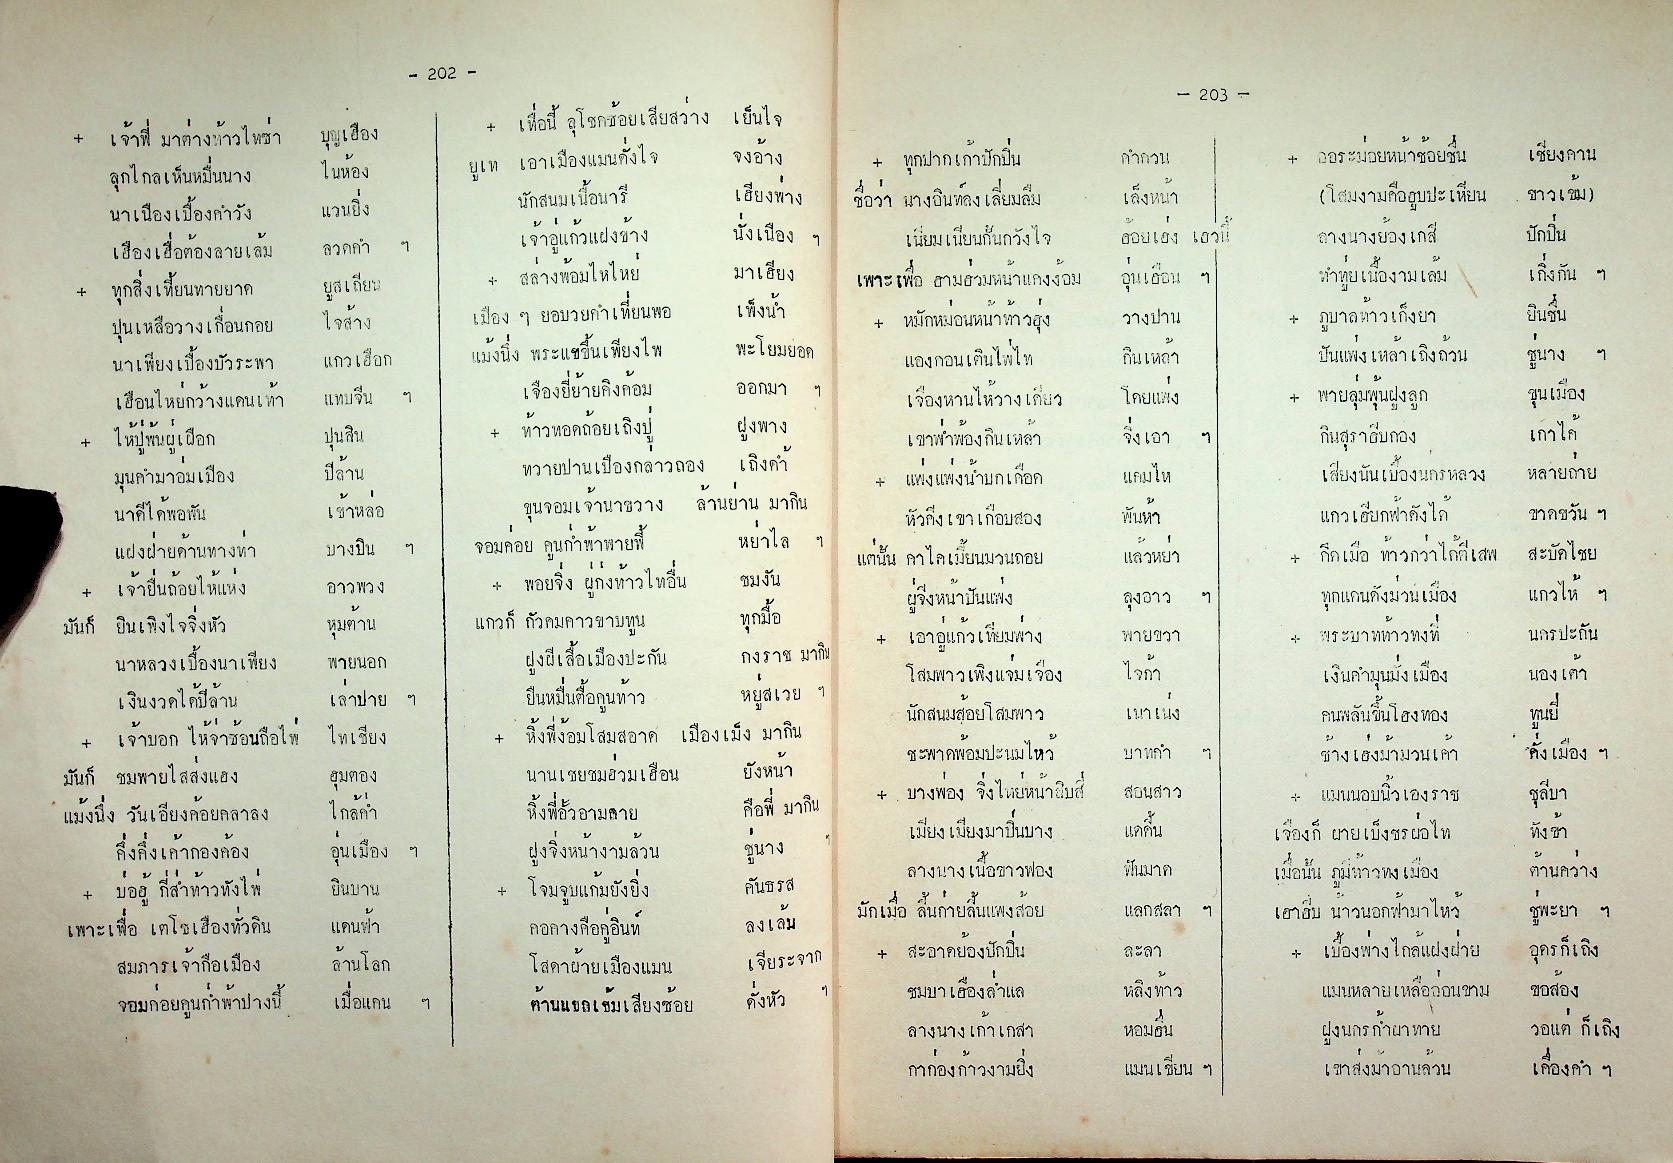 - 202 -
+ เจ้าพี่ มาต่างท้าวไหซ่า บุญเฮือง
ลุกไกลเห็นหมื่นนาง ในห้อง
นาเนืองเบื้องคำวัง แวนยิ่ง
เฮืองเฮื่อต้องลายเล้ม ลวดคำ ฯ
+ ทุกสิ่งเที้ยนทายยาค ยูสเถียน
ปุนเหลือวางเกื่อนกอย ใจส้าง
นาเพียงเบื้องบัวระพา แกวเฮือก
เฮือนใหย่กว้างแดนเท้า แทบจีน ฯ
+ ให้ปู่พ้นผู่เผือก ปุนสิน
มุนคำมาอ่มเมือง ปีล้าน
นาคีได้พอพัน เข้าหล่อ
แฝงฝ่ายด้านทางท่า บางบิน ฯ
+ เจ้ายื่นถ้อยให้แห่ง อาวพวง
มันก็ ยินเพิงใจจิ่งหัว หุมต้าน
นาหลวงเบื้องนาเพียง พายนอก
เงินงวดได้ปีล้าน เล่าปาย ฯ
+ เจ้าบอก ให้จ่าซ้อนถือไพ่ ไทเชียง
มันก็ ชมพายไสส่งแฮง ฮุมตอง
แม้งนึ่ง วันเอียงค้อยคลาลง ใกล้ค่ำ
คึ่งคึ่งเค้ากองค้อง อุ่นเมือง ฯ
+ บ่อฮู้ กี่ส่ำท้าวทังไพ่ ยินบาน
เพาะเพื่อ เตโชเฮืองทั่วดิน แดนฟ้า
สมภารเจ้ากือเมือง ล้านโลก
จอมก่อยคูนก่ำพ้าปางนี้ เมื่อแดน ฯ
+ เทื่อนี้ ลุโชกช้อยเสียสว่าง เย็นใจ
ยูเท เอาเมืองแมนดั่งใจ จงอ้าง
นักสนมเนื้อนารี เฮียงพ่าง
เจ้าอู่แก้วแฝงข้าง นั่งเนือง ฯ
+ สล่างพ้อมไหใหย่ มาเฮียง
เมือง ๆ ยอบวยคำเที่ยนพอ เพ็งน้ำ
แม้งนึ่ง พระแขขึ้นเพียงไพ พะโยมยอด
เจืองยี่ย้ายคิงค้อม ออกมา ฯ
+ ท้าวทอดถ้อยเถิงปู่ ฝูงพาง
ทวายปานเบืองกล่าวถอง เถิงค้ำ
ขุนจอมเจ้านาขวาง ล้านย่าน มากิน
จอมค่อย คูนก่ำพ้าพายพี้ หย่าไล ฯ
+ พอยจิ่ง ผู่กั่งท้าวไทอื่น ชมงัน
แกวก็ กัวคมดาวขาบทูน ทุกมื้อ
ฝูงผีเสื้อเมืองปะกัน กงราช มากิน
ยืนหมื่นตื้อคูนท้าว หยู่สเวย ฯ
+ หิ้งที่ง้อมโสมสอาด เมืองเม็ง มากิน
นานเชยชมฮ่วมเฮือน ยังหน้า
หิ้งพี่อั้วอามลาย คือพี่ มากิน
ฝูงจิ่งหน้างามล้วน ชู่นาง
+ โจมจูบแก้มยังยิ่ง คันธรส
คอคางคือคู่อินท์ ลงเล้ม
โสดาผ้ายเมืองแมน เจียระจาก
ต้านแขกเข้มเสียงซ้อย คั่งหัว ฯ
- 203 -
+ ทุกปากเก้าปักปิ่น คำกวน
ซื่อว่า นางอินท์ลงเลี่ยมลืม เล็งหน้า
เนี่ยมเนียนกั้นกวังใจ ฮ้อยเฮ่ง เฮวนี้
เพาะเพื่อ ฮามฮ่วมหน้าแคงง้อม อุ่นเฮือน ฯ
+ หมักหม่อนหน้าท้าวฮุ่ง วางปาน
แองกอนเดินไพ่ไท กินเหล้า
เจืองหานให้วางเดียว โดยแพ่ง
เขาพ่ำพ้องกินเหล้า จิ่งเอา ฯ
+ แพ่งแพ่งน้ำบกเดือด แคมไห
หัวกึ่งเขาเกือบสอง พันห้า
แต่นั้น คาไคเมี้ยนมวนถอย แล้วหย่า
ผู่จึ่งหน้าปันแพ่ง ลุงอาว ฯ
+ เอาอู่แก้วเทียมพ่าง พายขวา
โสมพาวเพิงแจ่มเจือง ใจก้า
นักสนมส้อยโสมพาว เนาเน่ง
ชะพาดพ้อมปะนมไหว้ บาทคำ ฯ
+ บางพ่อง จิ่งใหย่หน้าสิบสี่ สอนสาว
เมียงเมียงมาปิ่นบาง แดดื้น
ลางนางเนื้อขาวฟอง ฟันมาด
มักเมื่อ ลิ้นก่ายลิ้นแพงส้อย แลกสลา ฯ
+ สะอาดย้องปักปิ่น ละลา
ชมบาเฮืองล่ำแล หลิงท้าว
ลางนางเก้าเกสา หอมฮื่น
กาก่องก้าวงามยิ่ง แมนเขียน ฯ
+ ออระม่อยหน้าช้อยชื่น เชียงคาน
(โสมงามคือฮูบปะเหียน ชาวเข้ม)
ลางนางย้องเกสี ปักปิ่น
ทำทู่ยเนื้องามเล้ม เกิ่งกัน ฯ
+ ภูบาลท้าวเก็งยา ยินชื่น
ปันแพ่งเหล้าเถิงถ้วน ชู่นาง ฯ
+ พายลุ่มพุ้นฝูงลูก ขุนเมือง
กินสุราฮีบกอง เกาได้
เสียงนันเนื้องนครหลวง หลายถ่าย
แกวเฮียกฟ้าดังได้ ขาดขวัน ฯ
+ กึดเมือ ท้าวกว่าได้ตีเสพ สะบัดไชย
ทุกแดนดังม่วนเมือง แกวไห้ ฯ
+ พระบาทท้าวทงที่ นครปะกัน
เงินคำมุนมั่งเมือง นองเต้า
คนพลันขึ้นโฮงทอง ทูนยี่
ช้างเฮ่งม้ามวนเค้า คั่งเมือง ฯ
+ แมนนอบนิ้วเองราช ชุลีบา
เจืองก็ ผายเบ็งชรผ่อไท ทังช้า
เมื่อนั้น ภูมีท้าวทงเมือง ต้านคว่าง
เฮาฮีบ น้าวนอกฟ้ามาไหว้ ชู่พะยา ฯ
+ เบื้องพ่างใกล้แฝงฝ่าย อุดรก็เถิง
แมนหลายเหลือออนขาม ขอส้อง
ฝูงนครก้ำผาทาย วอแต่ ก็เถิง
เขาส่งม้าอานล้วน เคื่องคำ ฯ